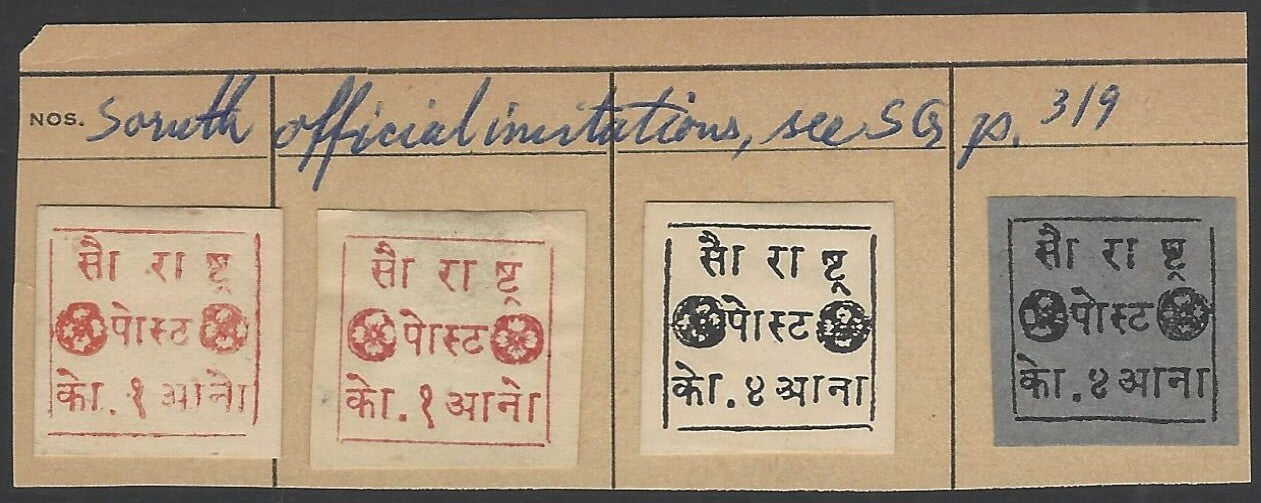 NOS. Soruth official imitations, see SG p. 319
सौ રા ष्ट्र
पोस्ट
को. १ आनो
सौ રા ष्ट्र
पोस्ट
को. १ आनो
सौ રા ष्ट्र
पोस्ट
को. ४ आना
सौ રા ष्ट्र
पोस्ट
को. ४ आना